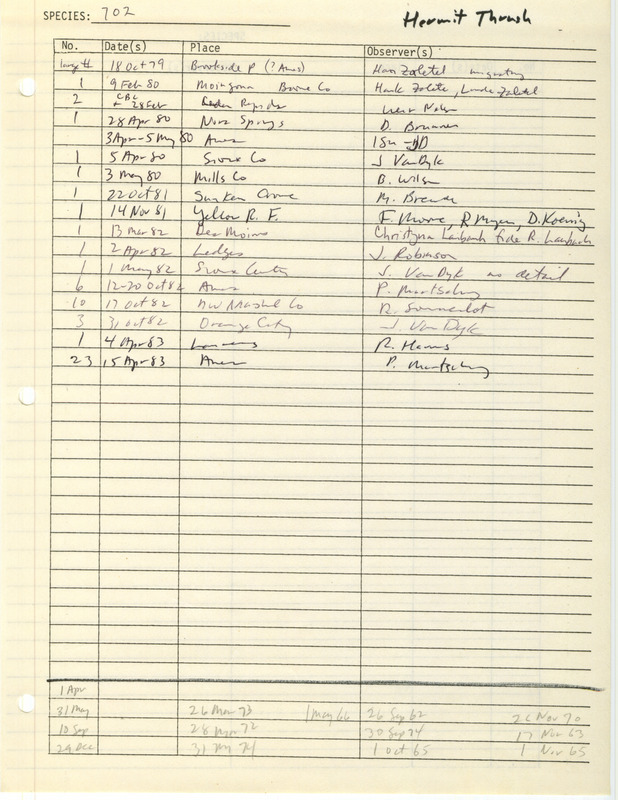 SPECIES: 702 Hermit Thrush
No. Date(s) Place Observer(s)
large # 18 Oct 79 Brookside P (? Ames) Zaletel migrating
1 9 Feb 80 Moingona Boone Co Hank Zalete, Linda Zaletel
2 CBC + 28 Feb Cedar Rapids
1 28 Apr 80 Nora Springs D.
3 Apr - 5 May 80 Ames ISU - JD
1 5 Apr 80 Sioux Co J VanDyk
1 3 May 80 Mills Co B. Wilson
1 22 Oct 81 Sunken Grove M.
1 14 Nov 81 Yellow R. F. F. Moore, R Myers, D. Koenig
1 13 Mar 82 Des Moines Christyna Laubach fide R. Laubach
1 2 Apr 82 Ledges J. Robinson
1 1 May 82 Sioux Center J. Van Dyk no detail
6 12-20 Oct 82 Ames P. Martsching
10 17 Oct 82 NW Marshall Co R.
3 31 Oct 82 Orange City J. Van Dyk
1 4 Apr 83 R. Harms
23 15 Apr 83 Ames P. Martsching
1 Apr
31 May 26 Mar 73 1 May 66 26 Sep 62 26 Nov 70
10 Sep 28 Mar 72 30 Sep 74 17 Nov 63
29 Dec 31 74 1 Oct 65 1 Nov 65